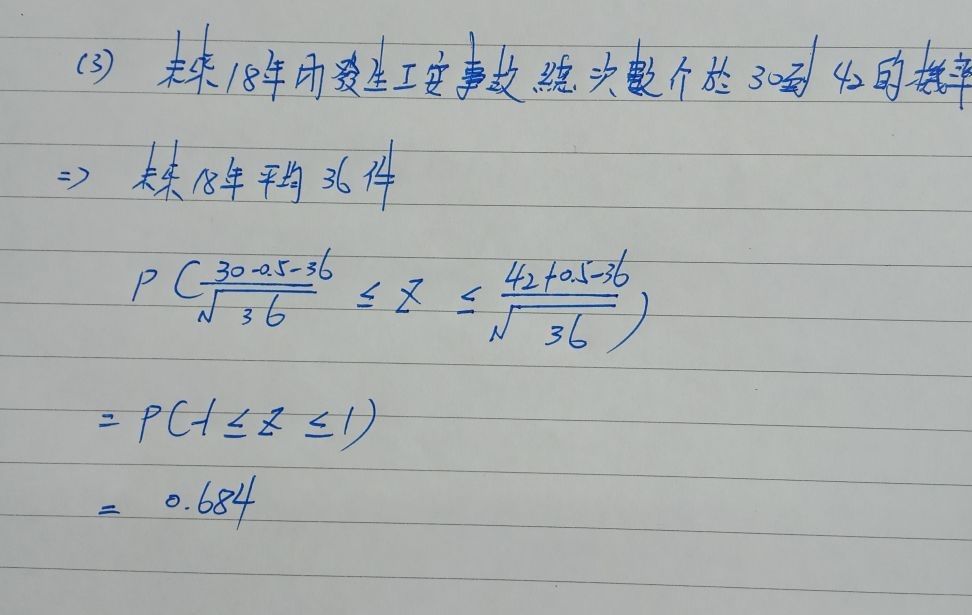 (3) 未來18年內發生工安事故總次數介於30到42的機率
=> 未來18年平均36件
P(\frac{30-0.5-36}{\sqrt{36}} ≤ Z ≤ \frac{42+0.5-36}{\sqrt{36}})
= P(-1 ≤ Z ≤ 1)
= 0.684